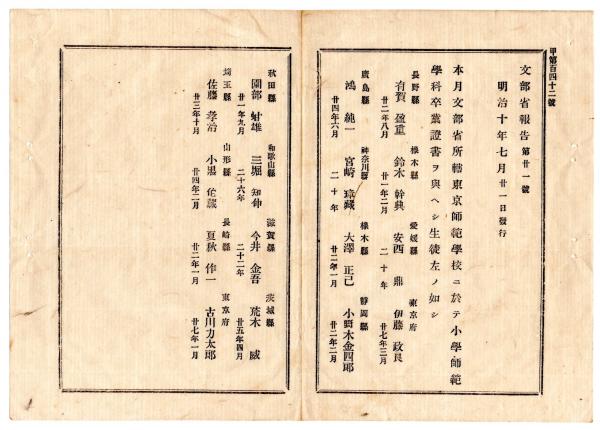 甲第百四十二號
文部省報告 第廿一號
明治十年七月廿一日發行
本月文部省所轄東京師範學校ニ於テ小學師範
學科卒業證書ヲ與ヘシ生徒左ノ如シ
長野縣 橡木縣 愛媛縣 東京府
有賀 盈重 鈴木 幹典 安西 鼎 伊藤 政良
廿二年八月 廿一年二月 二十年 廿七年三月
廣島縣 神奈川縣 橡木縣 靜岡縣
鴻 純一 宮崎 璋藏 大澤 正己 小野木金四郎
廿四年六月 二十年 廿二年一月 廿二年二月
秋田縣 和歌山縣 滋賀縣 茨城縣
園部 躲雄 三堀 知仲 今井 金吾 荒木 威
廿一年九月 二十六年 二十二年 廿五年四月
埼玉縣 山形縣 長崎縣 東京府
佐藤 孝治 小黑 藏 夏秋 作一 古川力太郎
廿三年十月 廿四年二月 廿二年一月 廿七年一月